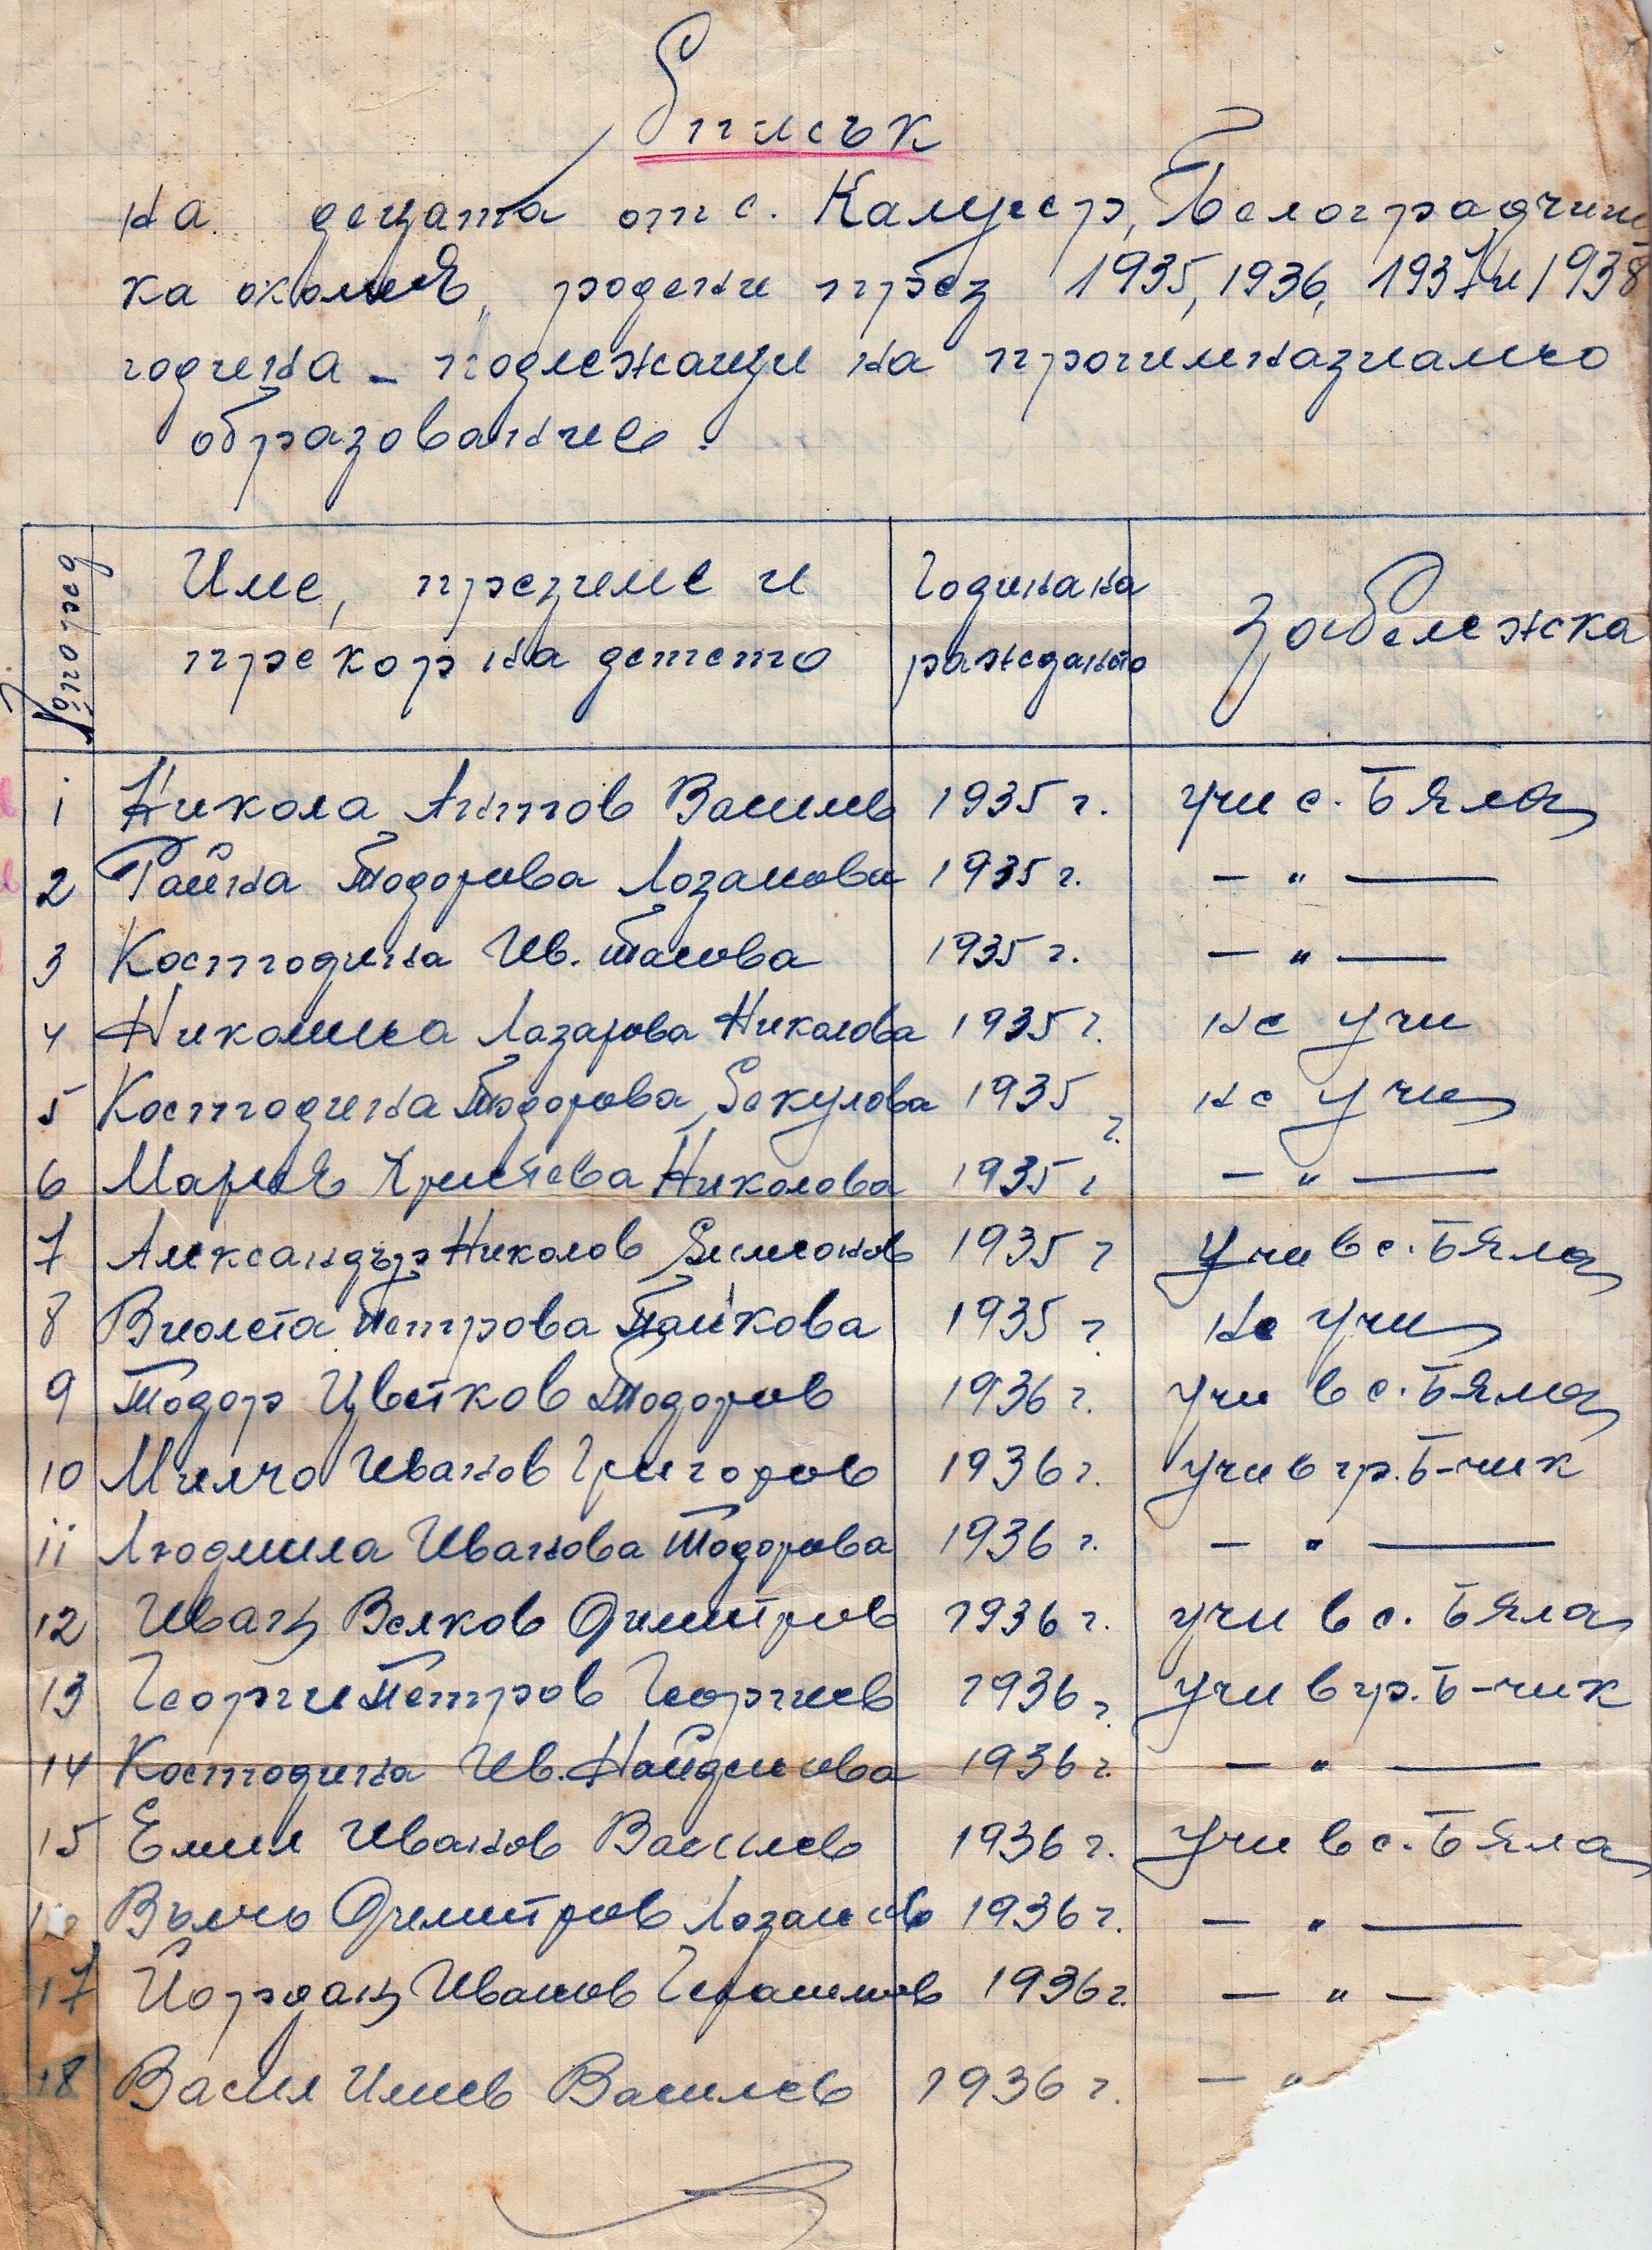 Списък
на децата от с. Калугер, Белоградчиш
ка околия, родени през 1935, 1936, 1937 и 1938
година – подлежащи на прогимназиално
образование.
№ по ред
Име, презиме и
прекор на детето
Година на
раждането
Забележка
1 Никола Антов Василев 1935 г. учи с. Бяла
2 Райна Тодорова Лозанова 1935 г. – „ —
3 Костодинка Ив. Танова 1935 г. – „ —
4 Николинка Лазарова Николова 1935 г. не учи
5 Костодинка Тодорова Секулова 1935 г. не учи
6 Мария Христева Николова 1935 г – „ —
7 Александър Николов Симеонов 1935 г учи в с. Бяла
8 Виолета Петрова Пайкова 1935 г. не учи
9 Тодор Цветков Тодоров 1936 г. учи в с. Бяла
10 Милчо Иванов Григоров 1936 г. учи в гр. Б-чик
11 Людмила Иванова Тодорова 1936 г. – „ —
12 Иван Велков Димитров 1936 г. учи в с. Бяла
13 Георги Петров Георгиев 1936 г. учи в гр. Б-чик
14 Костодинка Ив. Найденова 1936 г. – „ —
15 Емил Иванов Василев 1936 г. учи в с. Бяла
Вълчо Димитров Лозанов 1936 г. – „ —
17 Йордан Иванов Герасимов 1936 г. – „ –
18 Васил Илиев Василев 1936 г. – „